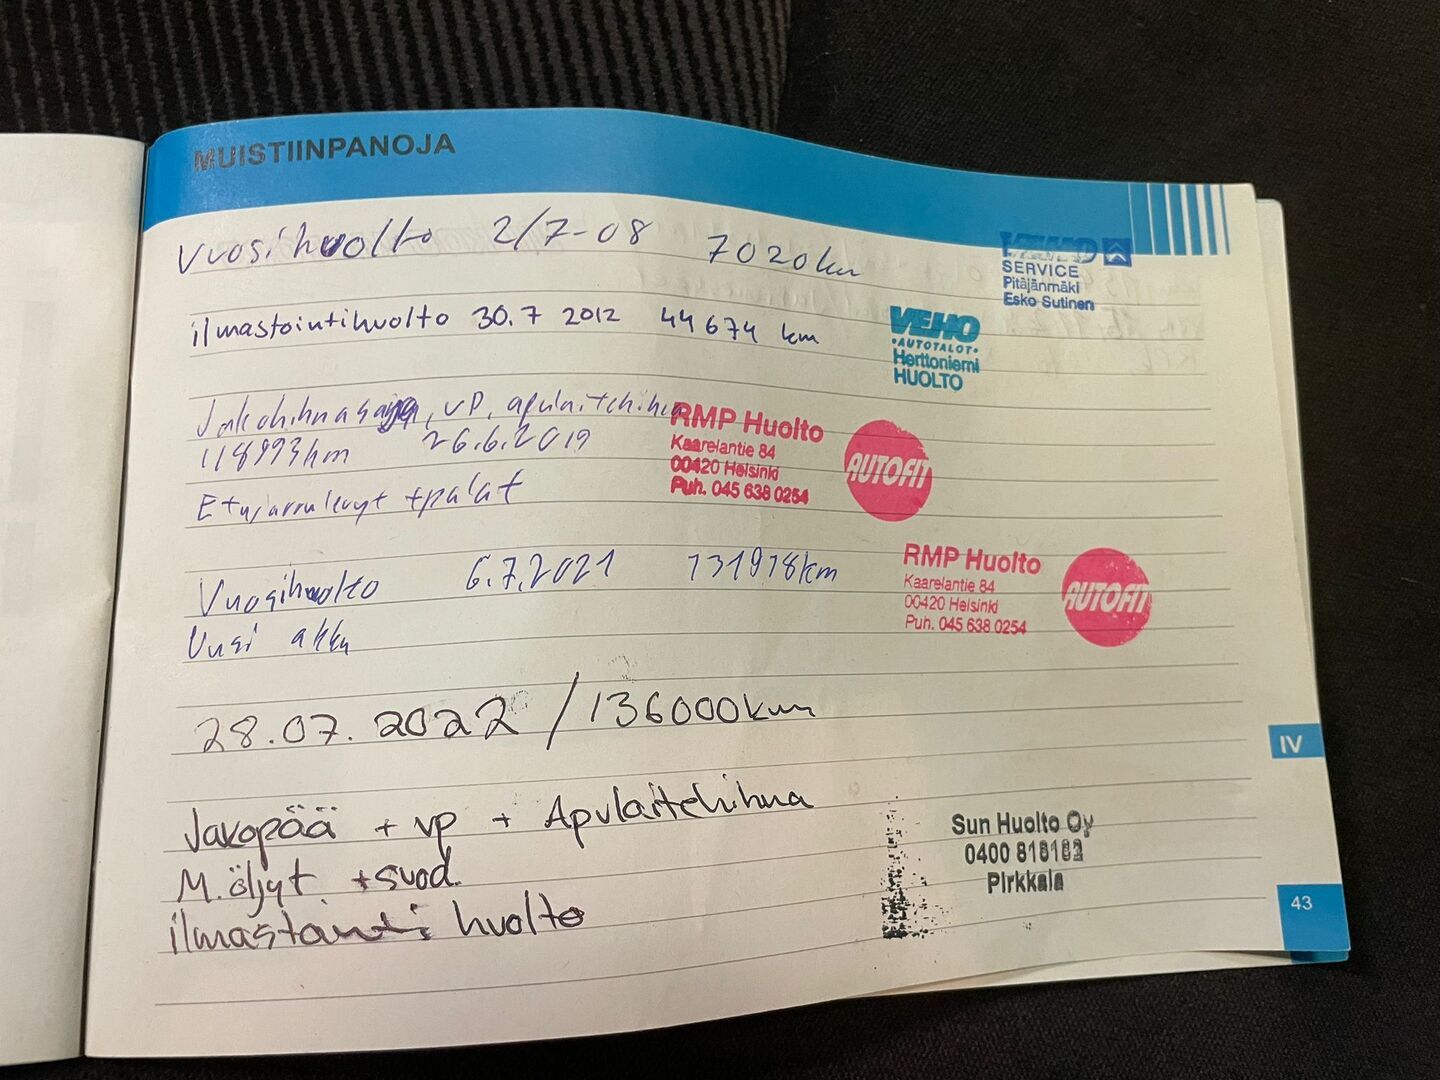 MUISTIINPANOJA
Vuosihuolto 2/7-08 7020km
VEHO
SERVICE
Pitäjänmäki
Esko Sutinen
ilmastointihuolto 30.7 2012 44674 km
VEHO
•AUTOTALOT•
Herttoniemi
HUOLTO
Jakohihnasarja, VP, apulaitehihna
118993km 26.6.2019
Etujarrulevyt +palat
RMP Huolto
Kaarelantie 84
00420 Helsinki
Puh. 045 638 0254
AUTOFIT
Vuosihuolto 6.7.2021 131978km
Uusi akku
RMP Huolto
Kaarelantie 84
00420 Helsinki
Puh. 045 638 0254
AUTOFIT
28.07.2022 / 136000km
IV
Jakopää + vp + Apulaitehihna
M.öljyt +suod.
ilmastointi huolto
Sun Huolto Oy
0400 818182
Pirkkala
43